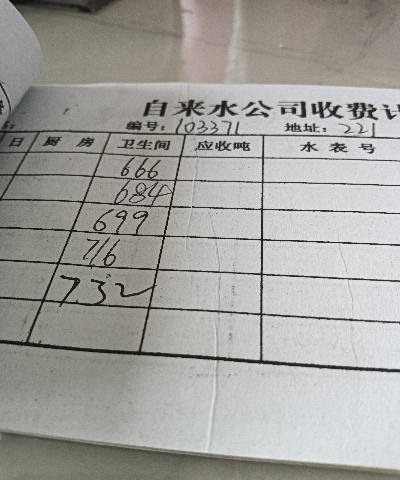 自来水公司收费计
编号：103371 地址：221
日 厨房 卫生间 应收吨 水表号
666
684
699
716
732